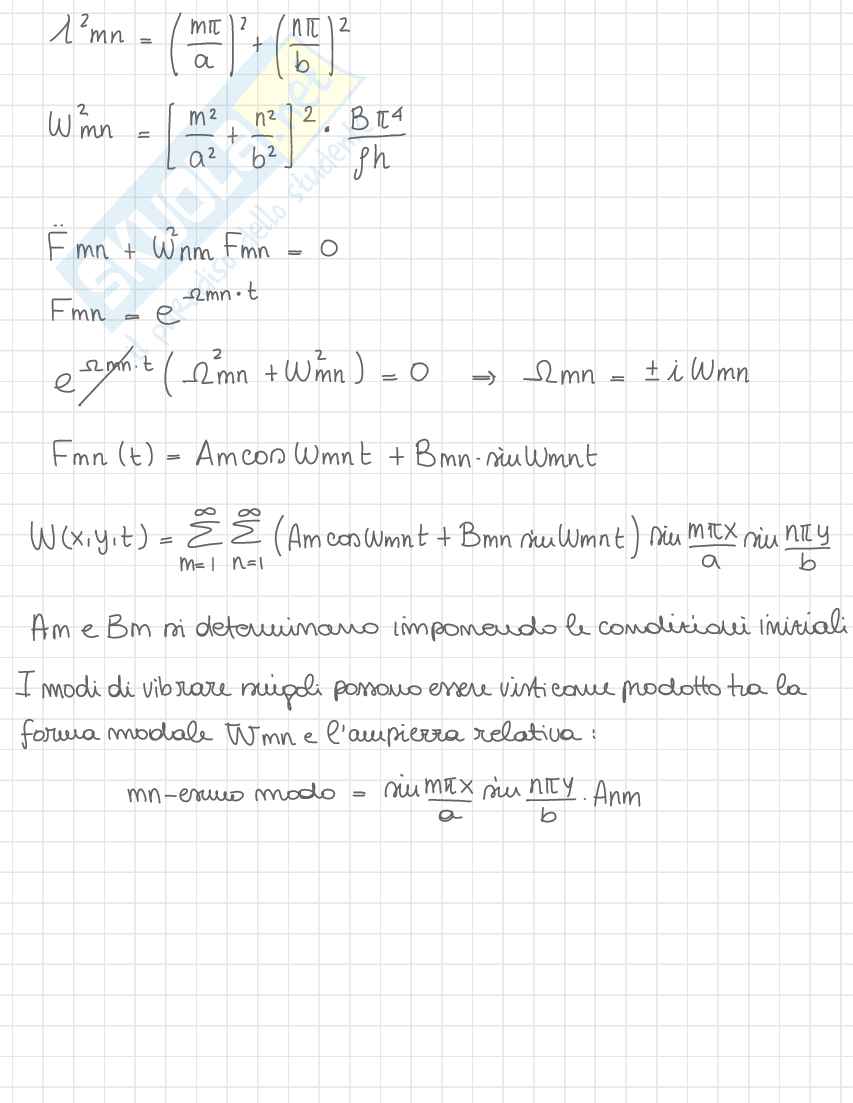 λ²mn = (mπ/a)² + (nπ/b)²
W²mn = [m²/a² + n²/b²]² · Bπ⁴/ρh
F̈mn + W²nm Fmn = 0
Fmn = e^Ωmn·t
e^Ωmn·t (Ω²mn + W²mn) = 0 ⇒ Ωmn = ± i Wmn
Fmn (t) = Am cos Wmn t + Bmn · sin Wmn t
W(x,y,t) = ∑m=1∞ ∑n=1∞ (Am cos Wmn t + Bmn sin Wmn t) sin mπx/a sin nπy/b
Am e Bm si determinano imponendo le condizioni iniziali
I modi di vibrare singoli possono essere visti come prodotto tra la
forma modale Wmn e l'ampiezza relativa :
mn-esimo modo = sin mπx/a sin nπy/b · Anm
SKUOLA.net
il paradiso dello studente